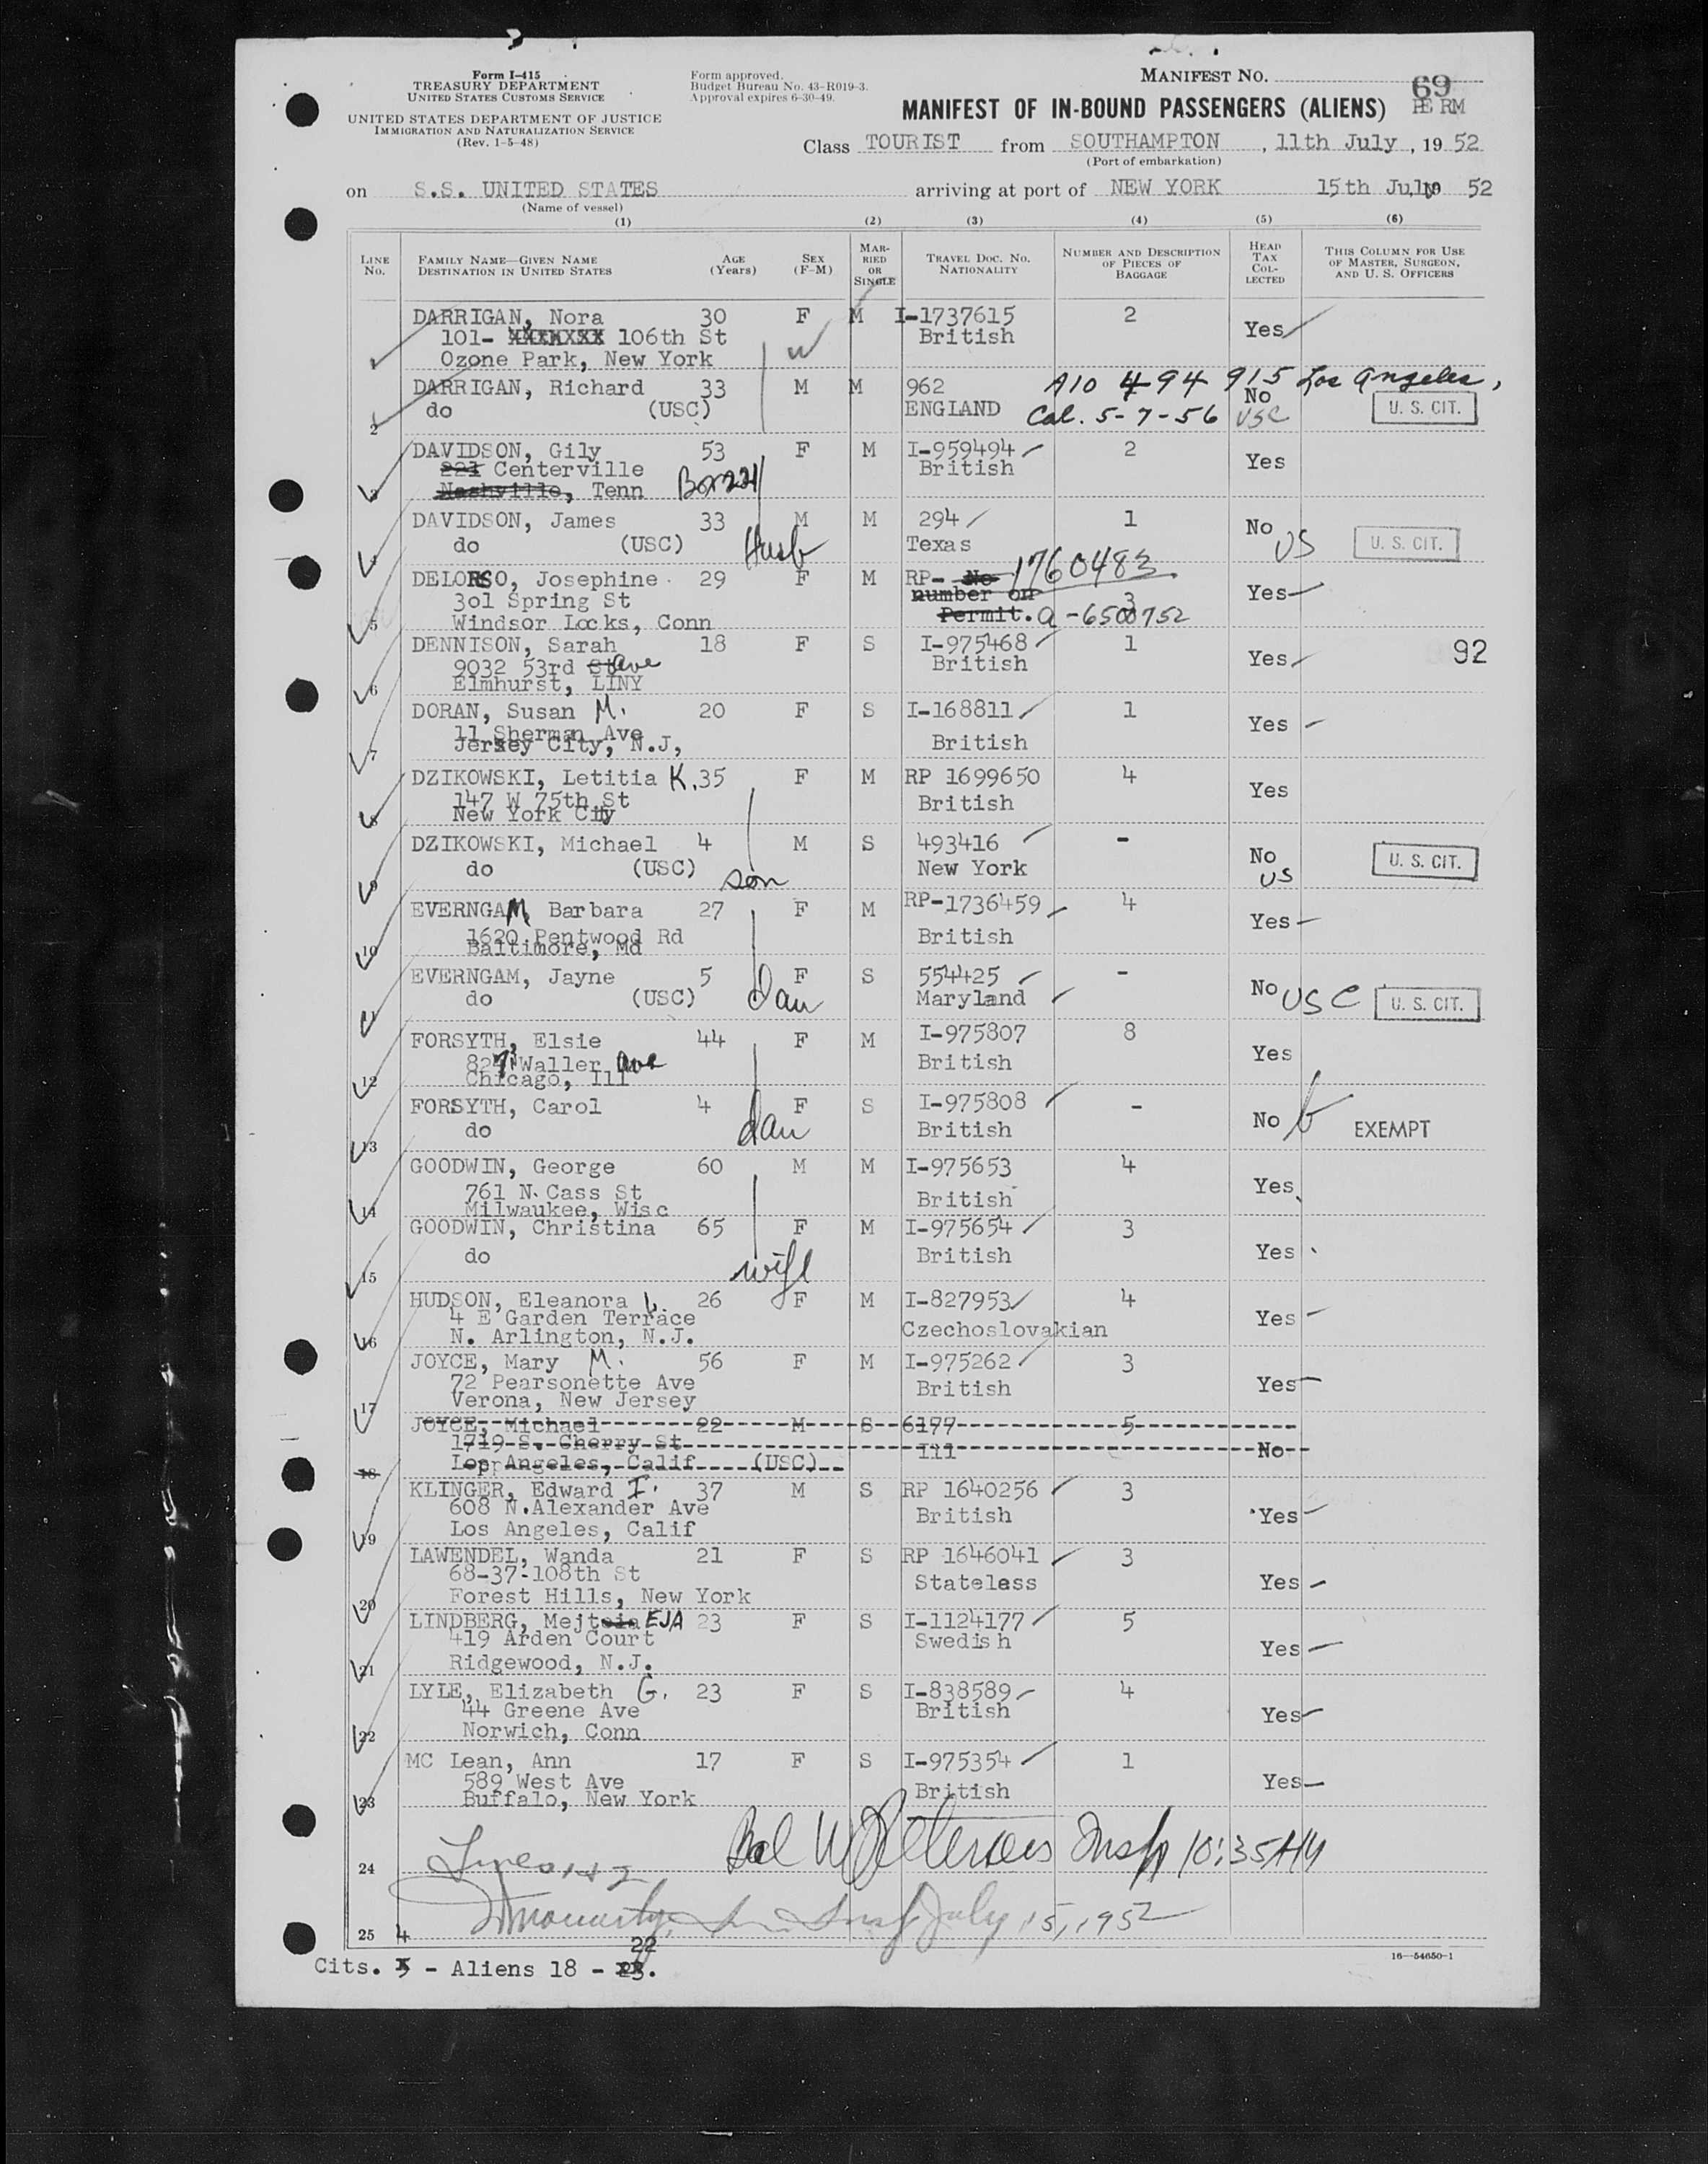 Form I-415
TREASURY DEPARTMENT
UNITED STATES CUSTOMS SERVICE
UNITED STATES DEPARTMENT OF JUSTICE
IMMIGRATION AND NATURALIZATION SERVICE
(Rev. 1-5-48)
Form approved.
Budget Bureau No. 43-R019-3.
Approval expires 6-30-49.
MANIFEST NO. 69
MANIFEST OF IN-BOUND PASSENGERS (ALIENS) PERM
Class TOURIST from SOUTHAMPTON, 11th July, 19 52
(Port of embarkation)
on S.S. UNITED STATES arriving at port of NEW YORK 15th July, 19 52
(Name of vessel)
(1) (2) (3) (4) (5) (6)
LINE No. FAMILY NAME—GIVEN NAME DESTINATION IN UNITED STATES AGE (Years) SEX (F-M) MARRIED OR SINGLE TRAVEL DOC. NO. NATIONALITY NUMBER AND DESCRIPTION OF PIECES OF BAGGAGE HEAD TAX COLLECTED THIS COLUMN FOR USE OF MASTER, SURGEON, AND U. S. OFFICERS
DARRIGAN, Nora 30 F M I-1737615 2 Yes
101- 106th St W British
Ozone Park, New York
2 DARRIGAN, Richard 33 M M 962 A10 494 915 Los Angeles,
do (USC) ENGLAND Cal. 5-7-56 No USC U. S. CIT.
3 DAVIDSON, Gily 53 F M I-959494 2 Yes
221 Centerville British
Nashville, Tenn Box 221
4 DAVIDSON, James 33 M M 294 1 No
do (USC) Husb Texas US U. S. CIT.
5 DELORSO, Josephine 29 F M RP- No 1760483 Yes
301 Spring St number on 3
Windsor Locks, Conn Permit. A-6500752
6 DENNISON, Sarah 18 F S I-975468 1 Yes 92
9032 53rd St Ave British
Elmhurst, LINY
7 DORAN, Susan M. 20 F S I-168811 1 Yes
11 Sherman Ave British
Jersey City, N.J,
8 DZIKOWSKI, Letitia K. 35 F M RP 1699650 4 Yes
147 W 75th St British
New York City
9 DZIKOWSKI, Michael 4 M S 493416 - No
do (USC) son New York US U. S. CIT.
10 EVERNGAM, Barbara 27 F M RP-1736459 4 Yes
1620 Pentwood Rd British
Baltimore, Md
11 EVERNGAM, Jayne 5 F S 554425 - No
do (USC) dau Maryland USC U. S. CIT.
12 FORSYTH, Elsie 44 F M I-975807 8 Yes
827 N Waller Ave British
Chicago, Ill
13 FORSYTH, Carol 4 F S I-975808 - No
do dau British EXEMPT
14 GOODWIN, George 60 M M I-975653 4 Yes
761 N. Cass St British
Milwaukee, Wisc
15 GOODWIN, Christina 65 F M I-975654 3 Yes
do wife British
16 HUDSON, Eleanora L. 26 F M I-827953 4 Yes
4 E Garden Terrace Czechoslovakian
N. Arlington, N.J.
17 JOYCE, Mary M. 56 F M I-975262 3 Yes
72 Pearsonette Ave British
Verona, New Jersey
18 JOYCE, Michael 22 M S 6177 5
1719 S. Cherry St Ill No
Los Angeles, Calif (USC)
19 KLINGER, Edward I. 37 M S RP 1640256 3 Yes
608 N.Alexander Ave British
Los Angeles, Calif
20 LAWENDEL, Wanda 21 F S RP 1646041 3 Yes
68-37-108th St Stateless
Forest Hills, New York
21 LINDBERG, Mejtsia EJA 23 F S I-1124177 5 Yes
419 Arden Court Swedish
Ridgewood, N.J.
22 LYLE, Elizabeth G. 23 F S I-838589 4 Yes
44 Greene Ave British
Norwich, Conn
23 MC Lean, Ann 17 F S I-975354 1 Yes
589 West Ave British
Buffalo, New York
24 Lines 1 & 2 Bal W Peterson Insp 10:35 AM
25 Insp July 15, 1952
4 22
Cits. 5 - Aliens 18 - 23.
16—54650-1